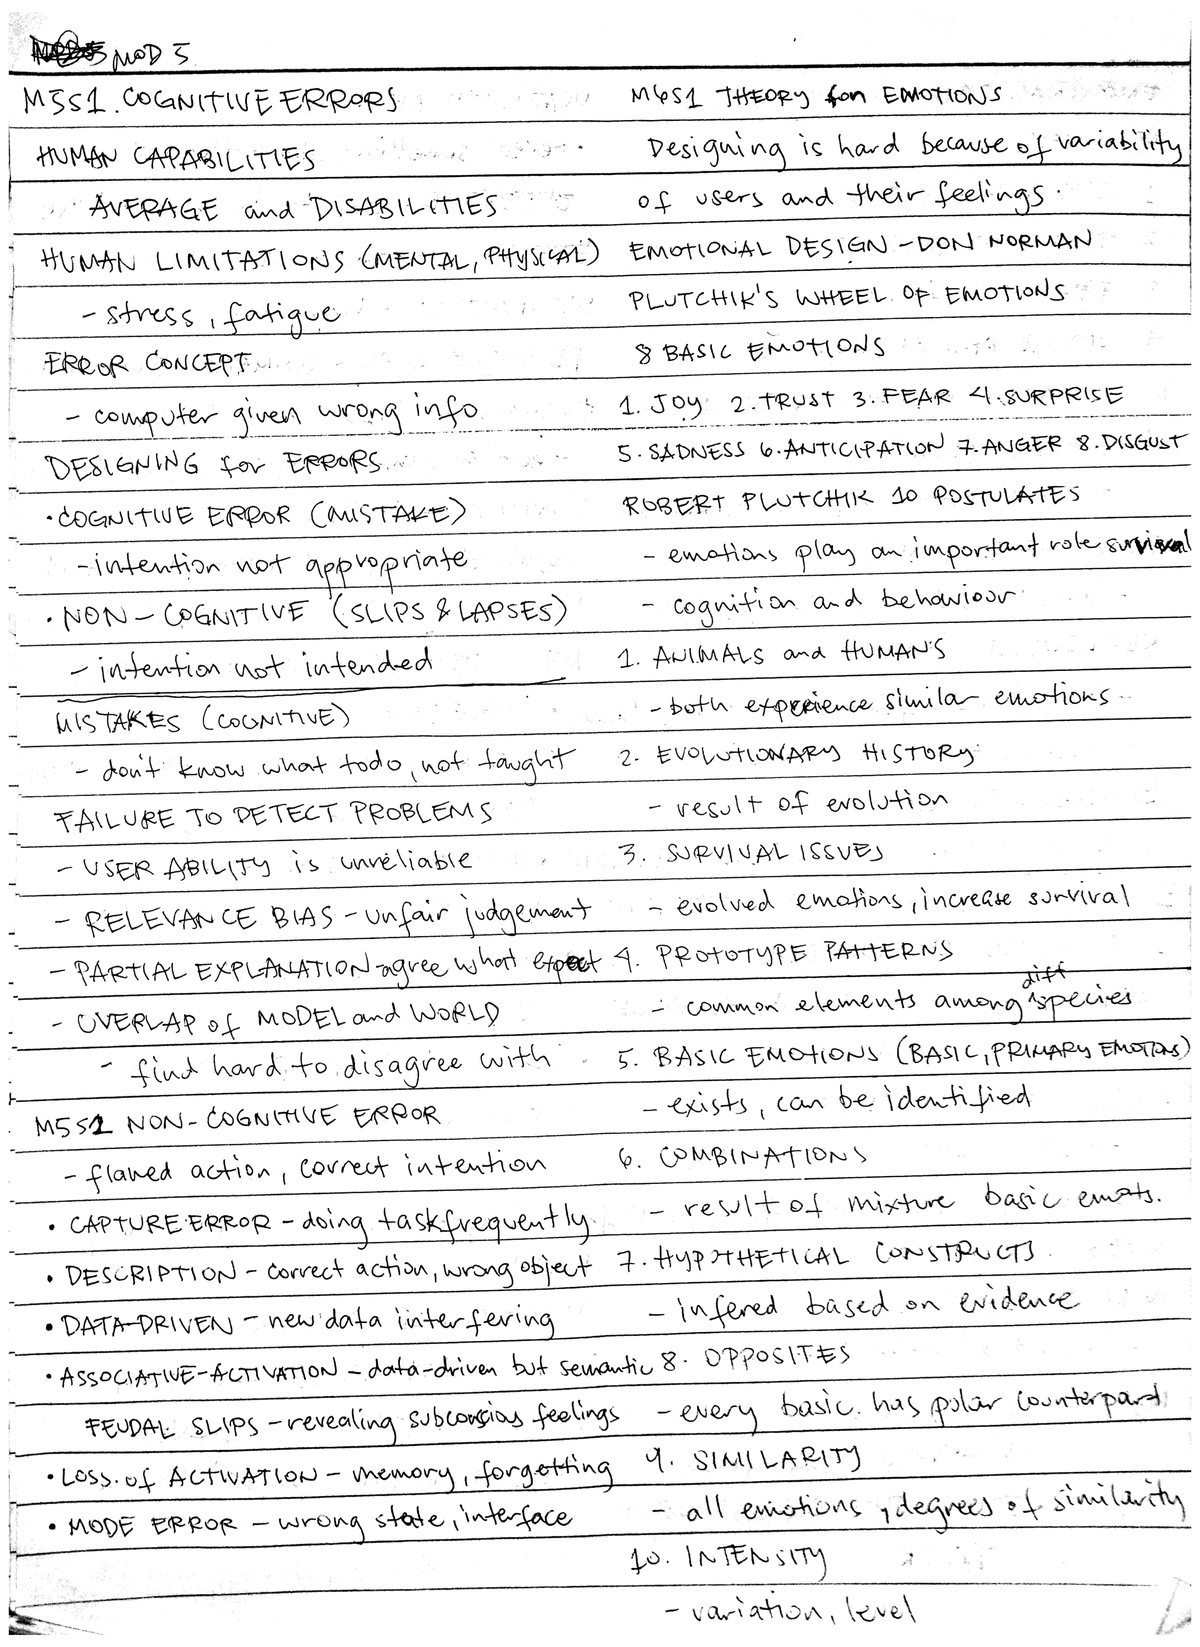 MOD 5
M5S1. COGNITIVE ERRORS
HUMAN CAPABILITIES
AVERAGE and DISABILITIES
HUMAN LIMITATIONS (MENTAL, PHYSICAL)
- stress, fatigue
ERROR CONCEPT
- computer given wrong info
DESIGNING for ERRORS
• COGNITIVE ERROR (MISTAKE)
- intention not appropriate
• NON-COGNITIVE (SLIPS & LAPSES)
- intention not intended
MISTAKES (COGNITIVE)
- don't know what todo, not taught
FAILURE TO DETECT PROBLEMS
- USER ABILITY is unreliable
- RELEVANCE BIAS - unfair judgement
- PARTIAL EXPLANATION - agree what expect
- OVERLAP of MODEL and WORLD
- find hard to disagree with
M5S2 NON-COGNITIVE ERROR
- flawed action, correct intention
• CAPTURE ERROR - doing task frequently
• DESCRIPTION - correct action, wrong object
• DATA-DRIVEN - new data interfering
• ASSOCIATIVE-ACTIVATION - data-driven but semantic
FEUDAL SLIPS - revealing subconscious feelings
• LOSS of ACTIVATION - memory, forgetting
• MODE ERROR - wrong state, interface
M6S1 THEORY for EMOTIONS
Designing is hard because of variability
of users and their feelings.
EMOTIONAL DESIGN - DON NORMAN
PLUTCHIK'S WHEEL OF EMOTIONS
8 BASIC EMOTIONS
1. JOY 2. TRUST 3. FEAR 4. SURPRISE
5. SADNESS 6. ANTICIPATION 7. ANGER 8. DISGUST
ROBERT PLUTCHIK 10 POSTULATES
- emotions play an important role survival
- cognition and behaviour
1. ANIMALS and HUMAN'S
- both experience similar emotions
2. EVOLUTIONARY HISTORY
- result of evolution
3. SURVIVAL ISSUES
- evolved emotions, increase survival
4. PROTOTYPE PATTERNS
- common elements among diff species
5. BASIC EMOTIONS (BASIC, PRIMARY EMOTIONS)
- exists, can be identified
6. COMBINATIONS
- result of mixture basic emots.
7. HYPOTHETICAL CONSTRUCTS
- infered based on evidence
8. OPPOSITES
- every basic has polar counterpart
9. SIMILARITY
- all emotions, degrees of similarity
10. INTENSITY
- variation, level